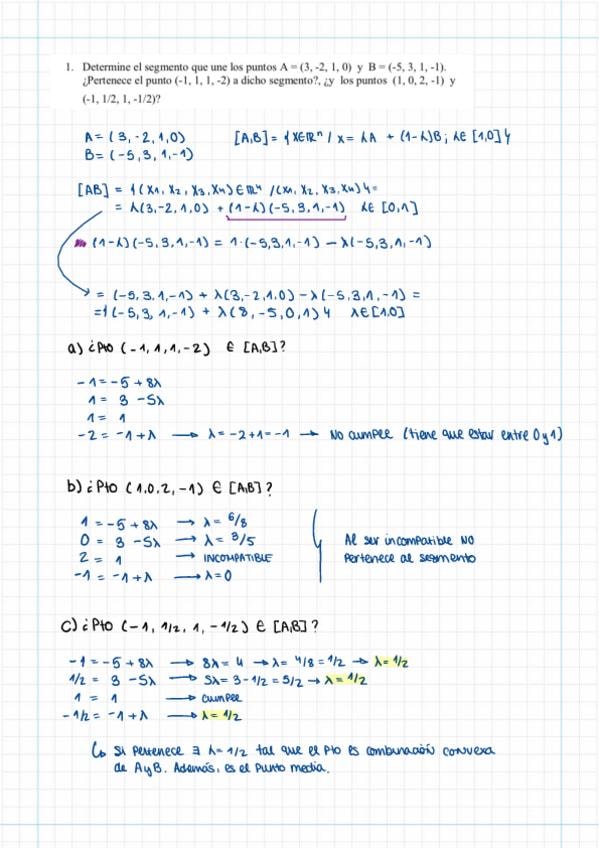 1. Determine el segmento que une los puntos A = (3, -2, 1, 0) y B = (-5, 3, 1, -1).
¿Pertenece el punto (-1, 1, 1, -2) a dicho segmento?, ¿y los puntos (1, 0, 2, -1) y
(-1, 1/2, 1, -1/2)?
A = (3, -2, 1, 0) [A,B] = {X∈ℝⁿ / X = λA + (1-λ)B; λ∈[1,0]}
B = (-5, 3, 1, -1)
[AB] = {(X1, X2, X3, X4)∈ℝ⁴ / (X1, X2, X3, X4)} =
= λ(3,-2,1,0) + (1-λ)(-5,3,1,-1) λ∈[0,1]
(1-λ)(-5,3,1,-1) = 1·(-5,3,1,-1) - λ(-5,3,1,-1)
= (-5,3,1,-1) + λ(3,-2,1,0) - λ(-5,3,1,-1) =
= {(-5,3,1,-1) + λ(8,-5,0,1)} λ∈[1,0]
a) ¿Pto (-1,1,1,-2) ∈ [A,B]?
-1 = -5 + 8λ
1 = 3 - 5λ
1 = 1
-2 = -1 + λ → λ = -2+1 = -1 → No cumple (tiene que estar entre 0 y 1)
b) ¿Pto (1,0,2,-1) ∈ [A,B]?
1 = -5 + 8λ → λ = 6/8
0 = 3 - 5λ → λ = 3/5 Al ser incompatible NO
2 = 1 → INCOMPATIBLE Pertenece al segmento
-1 = -1 + λ → λ = 0
c) ¿Pto (-1, 1/2, 1, -1/2) ∈ [A,B]?
-1 = -5 + 8λ → 8λ = 4 → λ = 4/8 = 1/2 → λ = 1/2
1/2 = 3 - 5λ → 5λ = 3 - 1/2 = 5/2 → λ = 1/2
1 = 1 → cumple
-1/2 = -1 + λ → λ = 1/2
↳ Si Pertenece ∃ λ = 1/2 tal que el Pto es combinación convexa
de A y B. Además, es el Punto media.